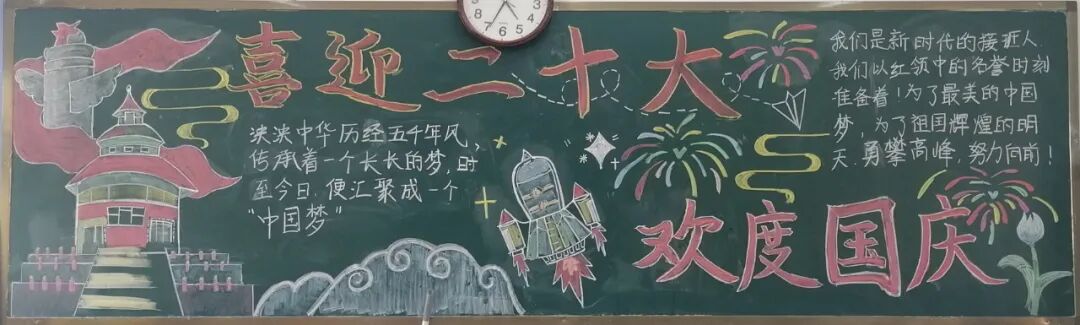 喜迎二十大
泱泱中华历经五千年风,
传承着一个长长的梦,时
至今日,便汇聚成一个
“中国梦”
我们是新时代的接班人
我们以红领巾的名誉时刻
准备着!为了最美的中国
梦,为了祖国辉煌的明
天,勇攀高峰,努力向前!
欢度国庆